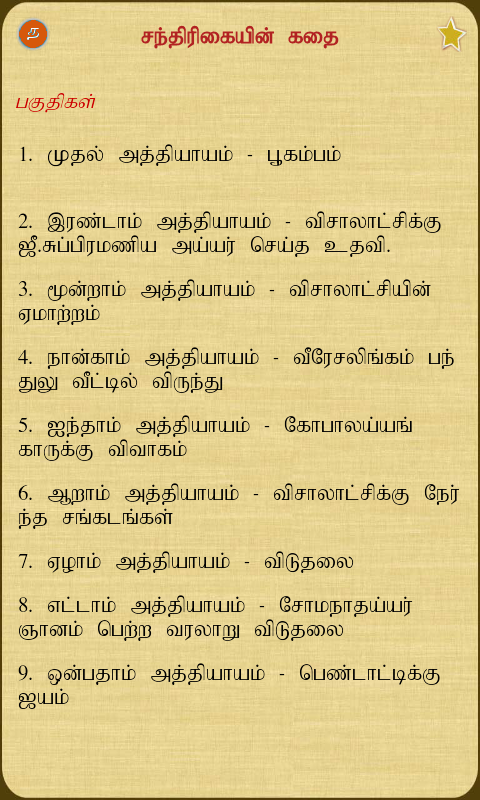 த
சந்திரிகையின் கதை
பகுதிகள்
1. முதல் அத்தியாயம் - பூகம்பம்
2. இரண்டாம் அத்தியாயம் - விசாலாட்சிக்கு
ஜீ.சுப்பிரமணிய அய்யர் செய்த உதவி.
3. மூன்றாம் அத்தியாயம் - விசாலாட்சியின்
ஏமாற்றம்
4. நான்காம் அத்தியாயம் - வீரேசலிங்கம் பந்
துலு வீட்டில் விருந்து
5. ஐந்தாம் அத்தியாயம் - கோபாலய்யங்
காருக்கு விவாகம்
6. ஆறாம் அத்தியாயம் - விசாலாட்சிக்கு நேர்
ந்த சங்கடங்கள்
7. ஏழாம் அத்தியாயம் - விடுதலை
8. எட்டாம் அத்தியாயம் - சோமநாதய்யர்
ஞானம் பெற்ற வரலாறு விடுதலை
9. ஒன்பதாம் அத்தியாயம் - பெண்டாட்டிக்கு
ஜயம்